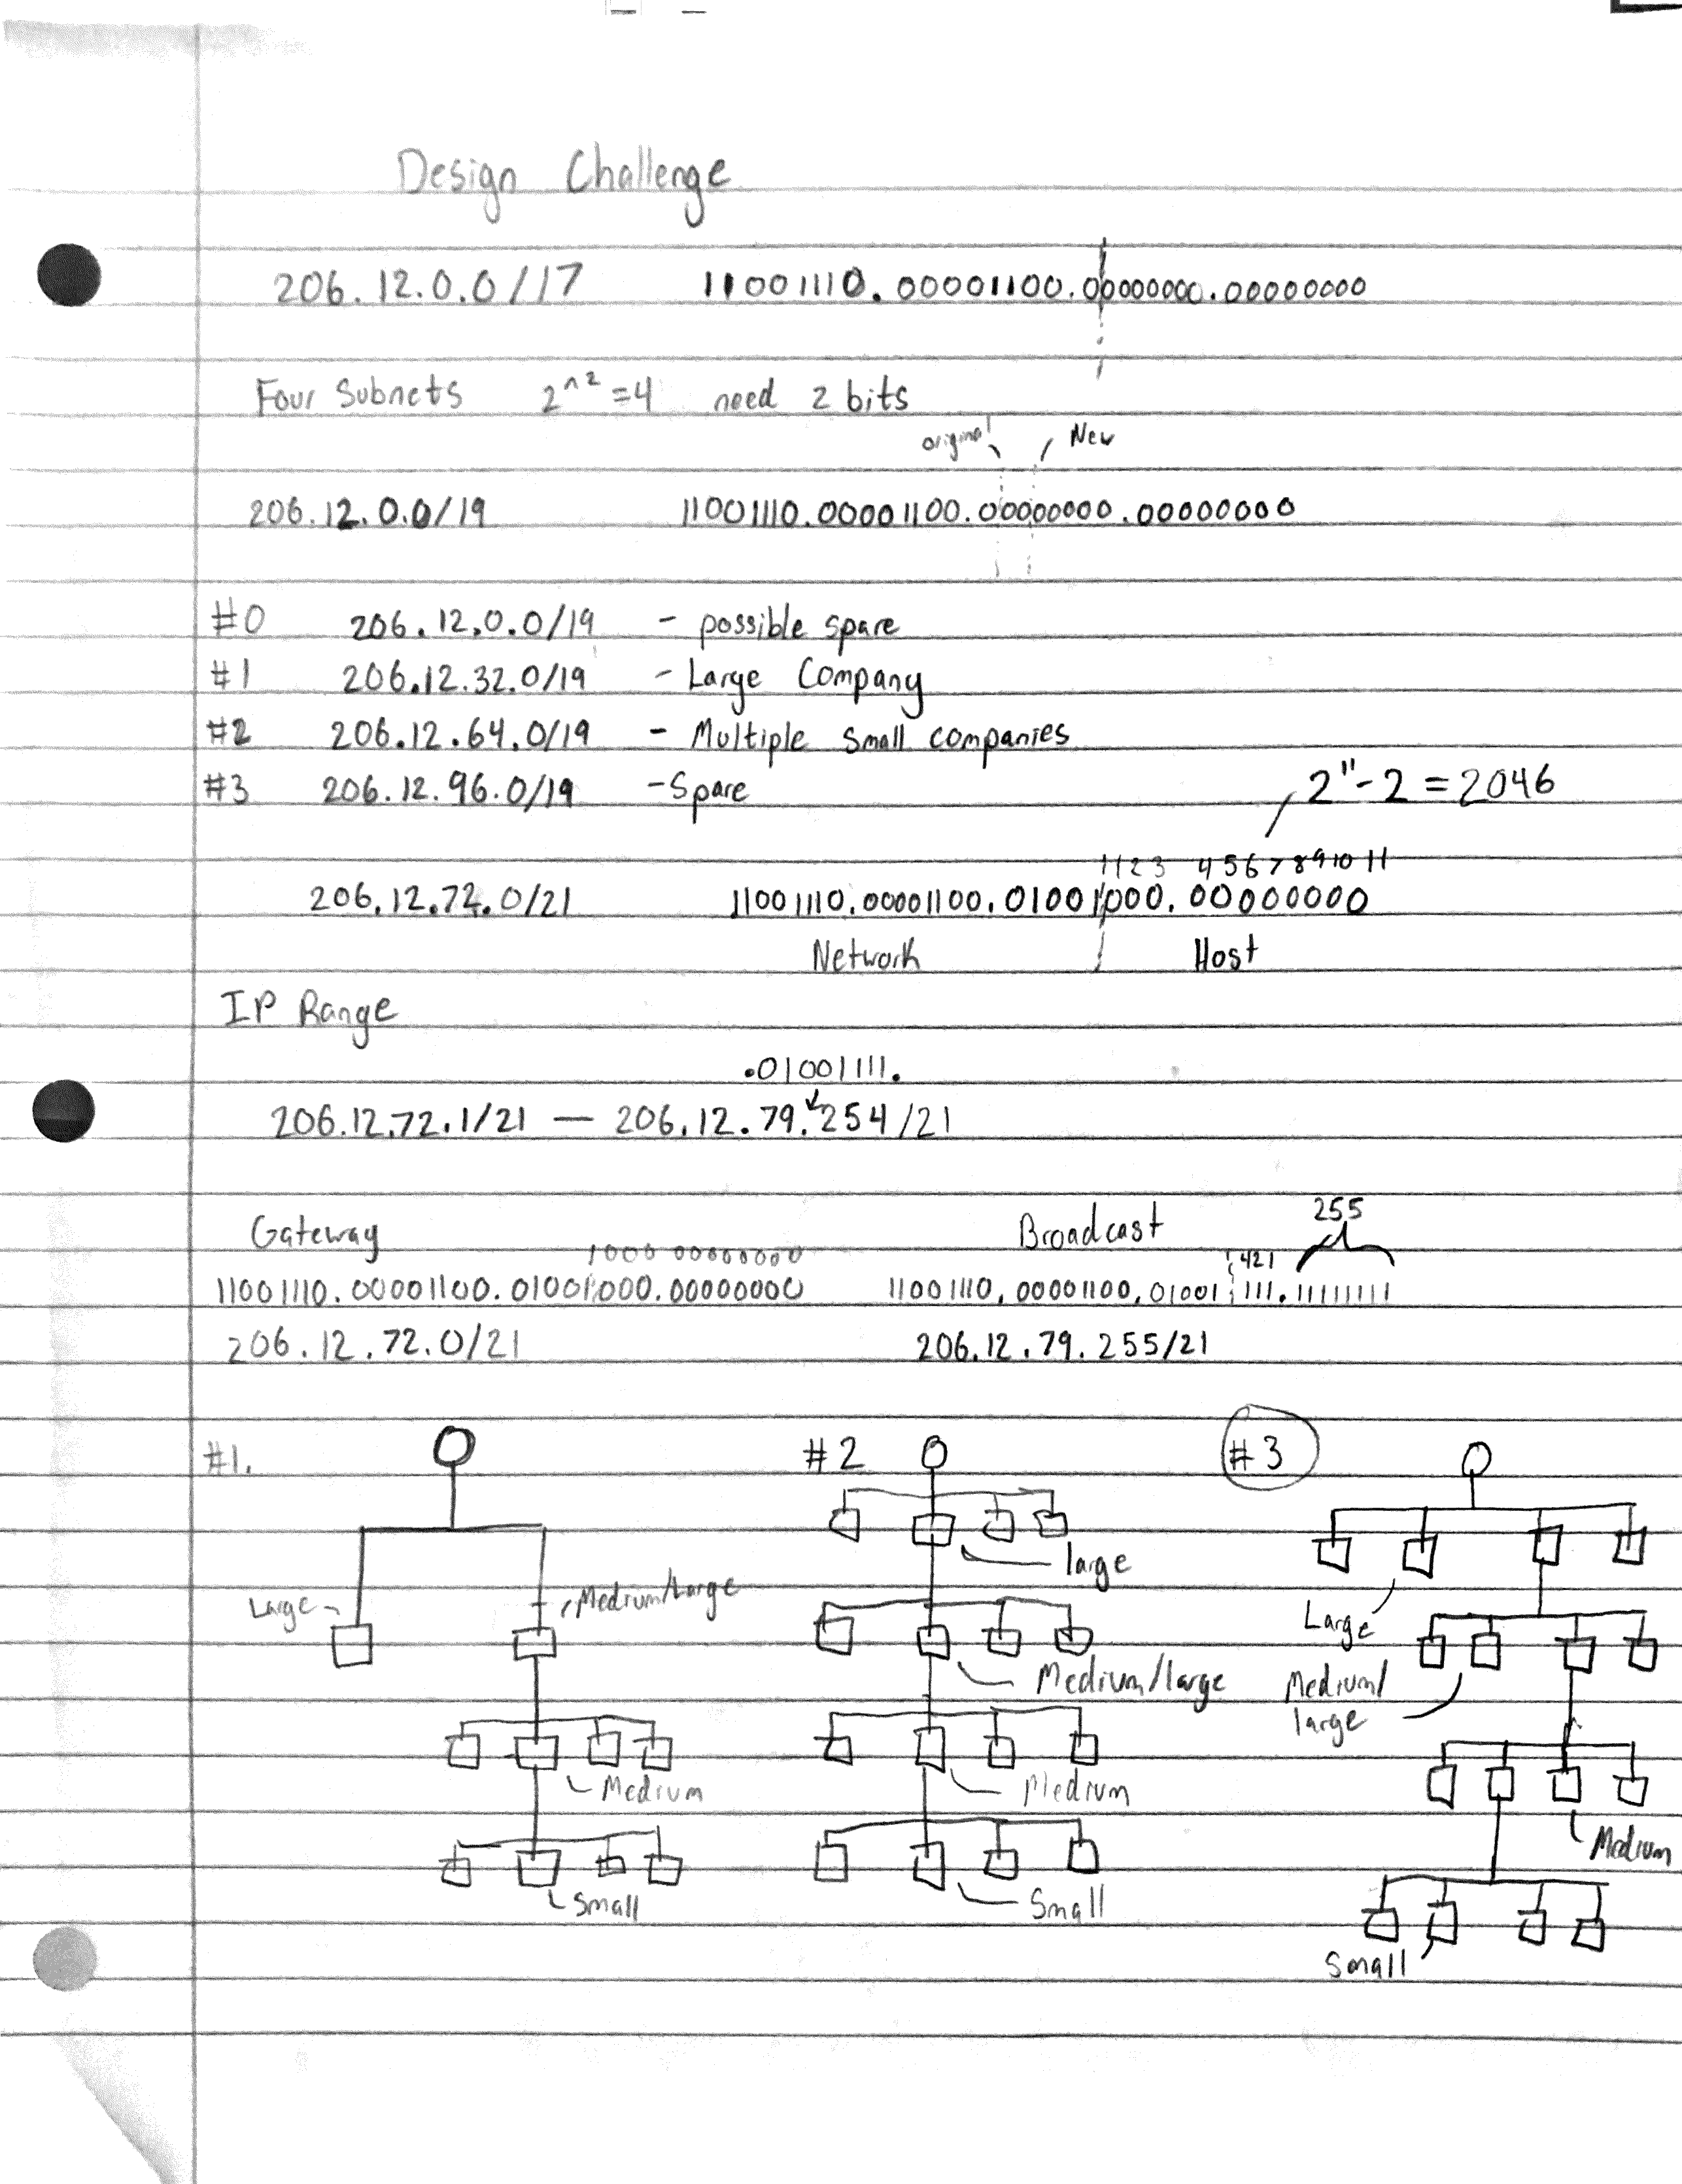 Design Challenge
206.12.0.0/17 11001110.00001100.00000000.00000000
Four Subnets 2^2=4 need 2 bits
original New
206.12.0.0/19 11001110.00001100.00000000.00000000
#0 206.12.0.0/19 - possible spare
#1 206.12.32.0/19 - Large Company
#2 206.12.64.0/19 - Multiple small companies
#3 206.12.96.0/19 - Spare
2^11-2=2046
1 2 3 4 5 6 7 8 9 10 11
206.12.72.0/21 11001110.00001100.01001000.00000000
Network Host
IP Range
.01001111.
206.12.72.1/21 — 206.12.79.254/21
Gateway Broadcast 255
1000 00000000 421
11001110.00001100.01001000.00000000 11001110.00001100.01001111.11111111
206.12.72.0/21 206.12.79.255/21
#1. #2 #3
large
Large Medium/Large Large
Medium/large Medium/
large
Medium Medium
Medium
Small Small
Small